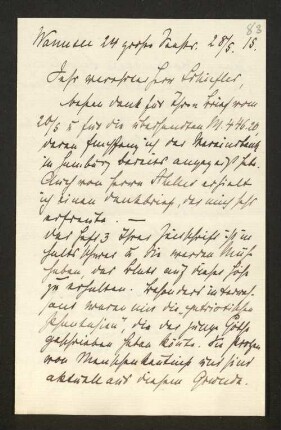 83
Wannsee 24 große Seestr. 28/5. 15.
Sehr verehrter Herr Schiefler,
besten Dank für Ihren Brief vom
20/5 u für die übersandten M. 446.20,
deren Empfang ich der Vereinsbank
in Hamburg bereits angezeigt habe.
Auch von Herrn erhielt
ich einen Dankbrief, der mich sehr
erfreute. —
Das Heft 3 Ihrer Zeitschrift ist in-
haltsschwer u. Sie werden Mühe
haben, das Blatt auf dieser Höhe
zu erhalten. Besonders interes-
sant waren mir die patriotischen
Phantasien, die der junge Goethe
geschrieben haben könnte. Die Fragen
von und sind
aktuell aus diesem Grunde.